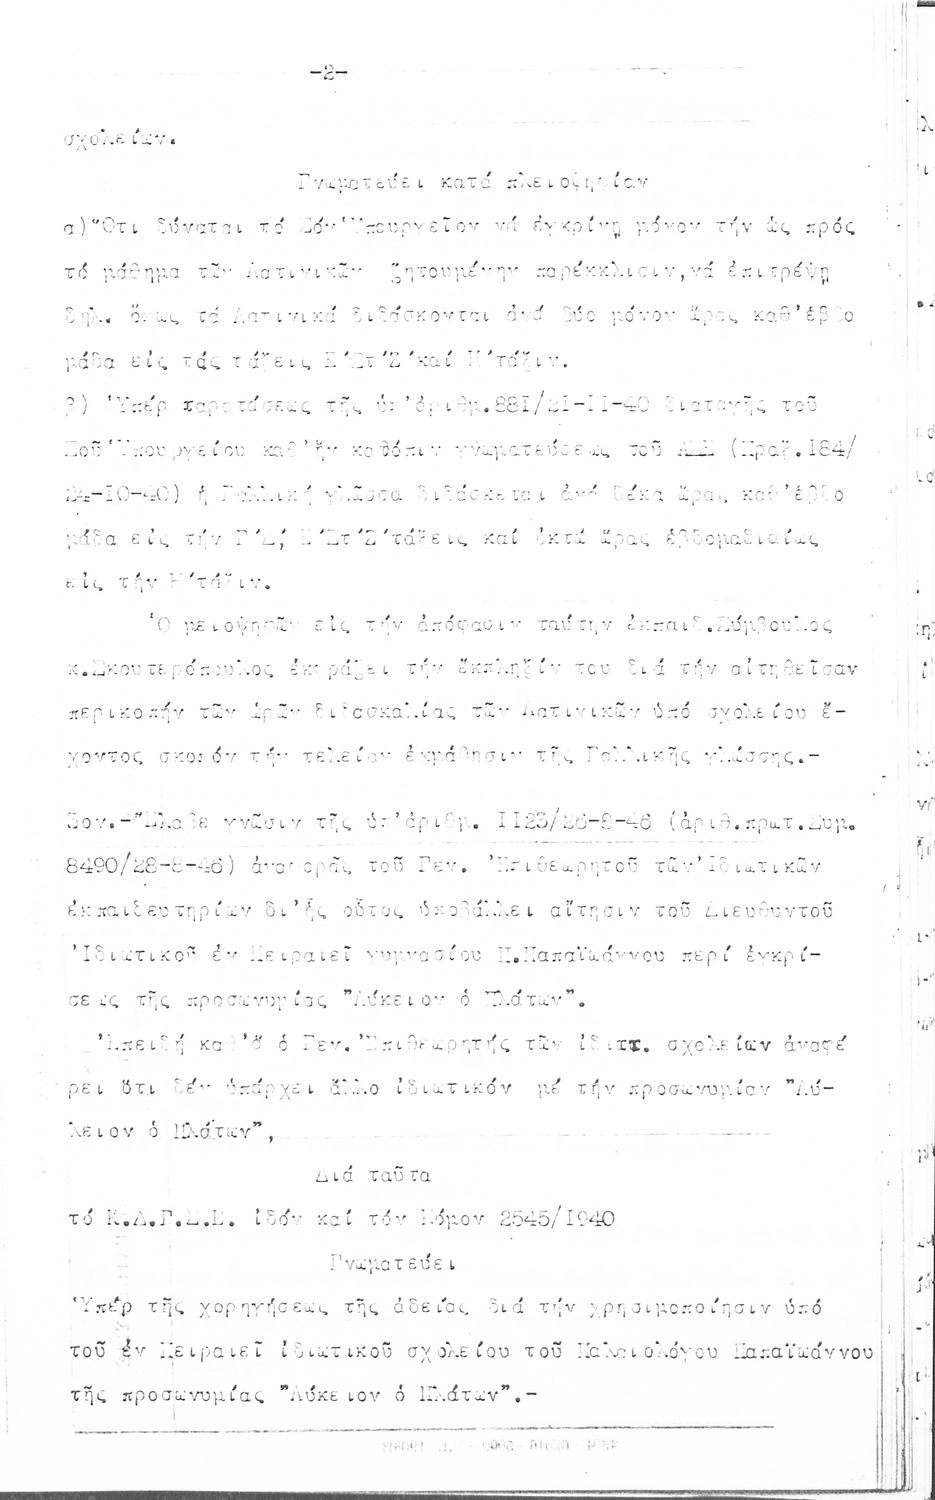 -2-
σχολείων.
Γνωματεύει κατά πλειοψηφίαν
α)"Ότι δύναται τό Σόν Ὑπουργεῖον νά ἐγκρίνῃ μόνον τήν ὡς πρός
τό μάθημα τῶν Λατινικῶν ζητουμένην παρέκκλισιν,νά ἐπιτρέψῃ
δηλ. ὅπως τά Λατινικά διδάσκονται ἀνά δύο μόνον ὥρας καθ'ἑβδο
μάδα εἰς τάς τάξεις Ε'Στ'Ζ'καί Η'τάξιν.
β) Ὑπέρ παρατάσεως τῆς ὑπ'ἀριθμ.881/21-11-40 διαταγῆς τοῦ
Σοῦ Ὑπουργείου καθ'ἥν κατόπιν γνωματεύσεως τοῦ (Πραξ.184/
24-10-40) ἡ Γαλλική γλῶσσα διδάσκεται ἀνά δέκα ὥρας καθ'ἑβδο
μάδα εἰς τήν Γ'Δ', Ε'Στ'Ζ'τάξεις καί ὀκτώ ὥρας ἑβδομαδιαίως
εἰς τήν Η'τάξιν.
Ὁ μειοψηφῶν εἰς τήν ἀπόφασιν ταύτην ἐκπαιδ.Σύμβουλος
κ.Σκουτερόπουλος ἐκφράζει τήν ἔκπληξίν του διά τήν αἰτηθεῖσαν
περικοπήν τῶν ὡρῶν διδασκαλίας τῶν Λατινικῶν ὑπό σχολείου ἔ-
χοντος σκοπόν τήν τελείαν ἐκμάθησιν τῆς Γαλλικῆς γλώσσης.-
3ον.-"Ελαβε γνῶσιν τῆς ὑπ'ἀριθμ. 1123/26-8-46 (ἀριθ.πρωτ.Συμ.
8490/28-8-46) ἀναφορᾶς τοῦ Γεν. Ἐπιθεωρητοῦ τῶν Ἰδιωτικῶν
ἐκπαιδευτηρίων δι'ἧς οὗτος ὑποβάλλει αἴτησιν τοῦ Διευθυντοῦ
Ἰδιωτικοῦ ἐν Πειραιεῖ γυμνασίου Π.Παπαϊωάννου περί ἐγκρί-
σεως τῆς προσωνυμίας "Λύκειον ὁ Πλάτων".
Ἐπειδή καθ'ἅ ὁ Γεν. Ἐπιθεωρητής τῶν ἰδιωτ. σχολείων ἀναφέ
ρει ὅτι δέν ὑπάρχει ἄλλο ἰδιωτικόν μέ τήν προσωνυμίαν "Λύ-
κειον ὁ Πλάτων",
Διά ταῦτα
τό Κ.Δ.Γ.Σ.Ε. ἰδόν καί τόν Νόμον 2545/1940
Γνωματεύει
Ὑπέρ τῆς χορηγήσεως τῆς ἀδείας διά τήν χρησιμοποίησιν ὑπό
τοῦ ἐν Πειραιεῖ ἰδιωτικοῦ σχολείου τοῦ Παλαιολόγου Παπαϊωάννου
τῆς προσωνυμίας "Λύκειον ὁ Πλάτων".-